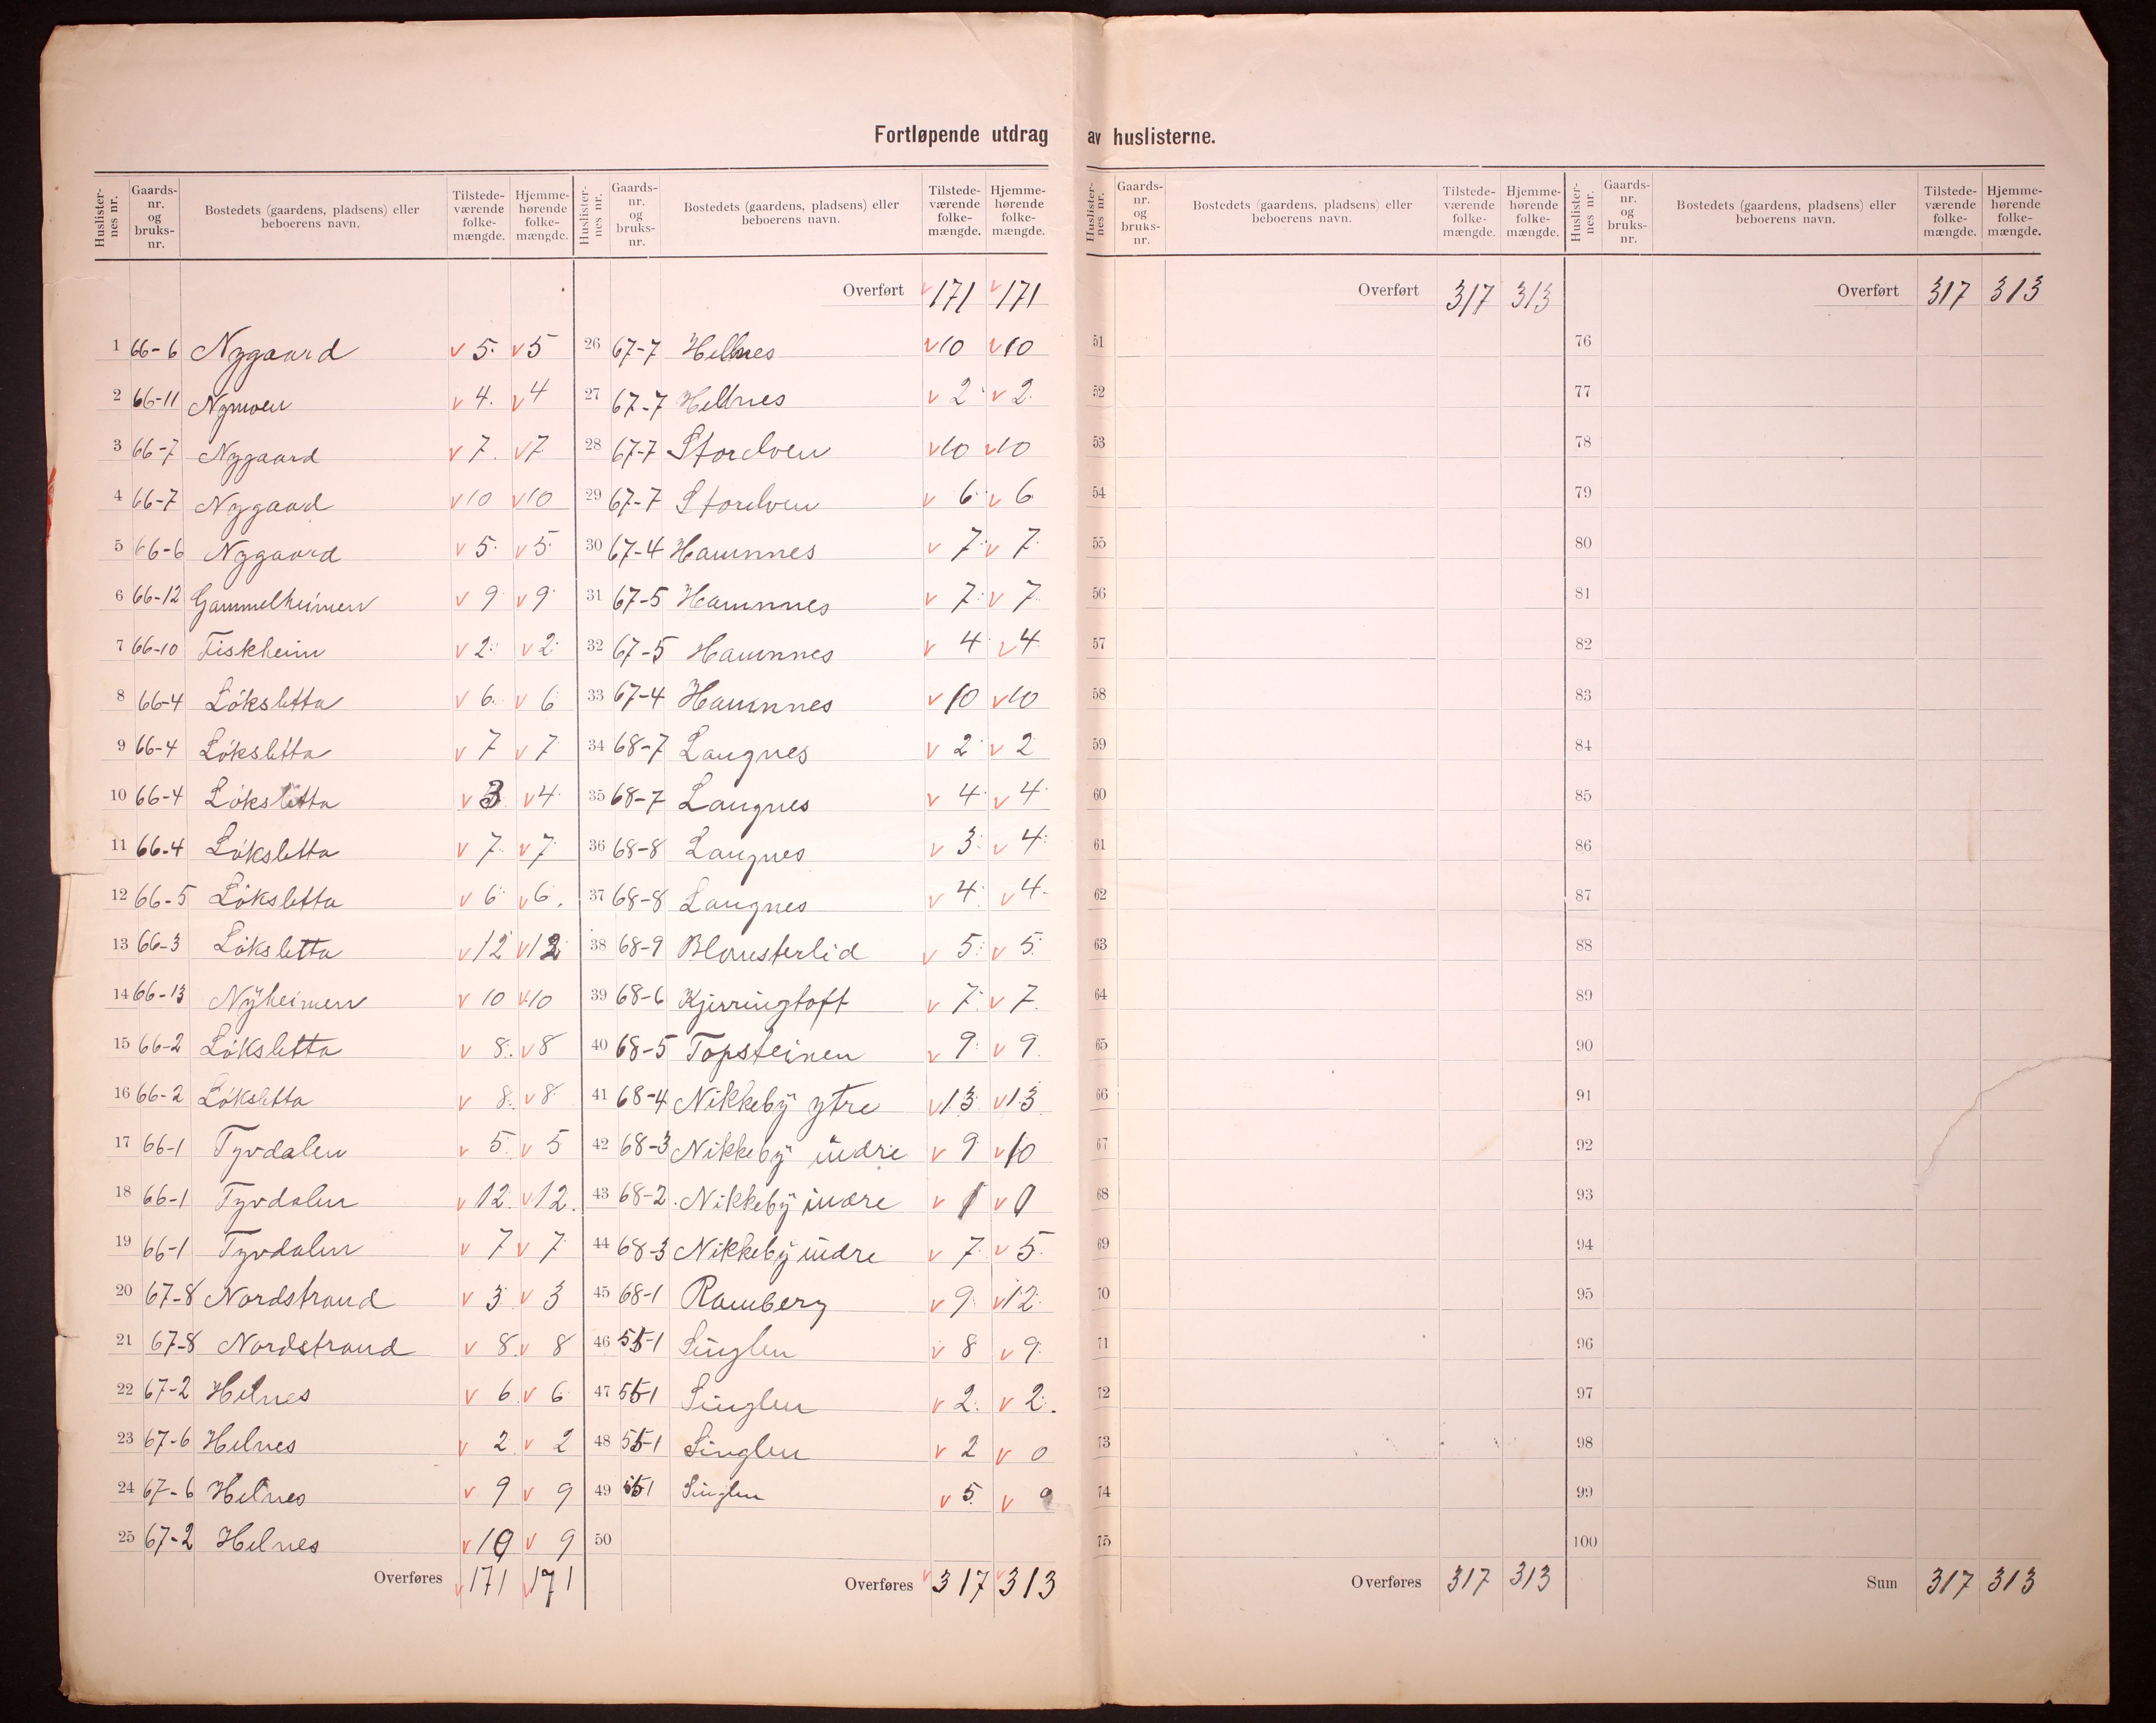 Fortløpende utdrag av huslisterne.
Huslisternes nr. Gaards-nr. og bruks-nr. Bostedets (gaardens, pladsens) eller beboerens navn. Tilstede-værende folke-mængde. Hjemme-hørende folke-mængde.
1 66-6 Nygaard v 5. v 5
2 66-11 Nymoen v 4. v 4
3 66-7 Nygaard v 7. v 7
4 66-7 Nygaard v 10 v 10
5 66-6 Nygaard v 5. v 5.
6 66-12 Gammelheimen v 9 v 9
7 66-10 Fiskheim v 2 v 2
8 66-4 Löksletta v 6. v 6
9 66-4 Löksletta v 7 v 7
10 66-4 Löksletta v 3 v 4
11 66-4 Löksletta v 7 v 7
12 66-5 Löksletta v 6 v 6.
13 66-3 Löksletta v 12 v 12
14 66-13 Nÿheimen v 10 v 10
15 66-2 Löksletta v 8. v 8
16 66-2 Löksletta v 8. v 8
17 66-1 Tyvdalen v 5. v 5
18 66-1 Tyvdalen v 12. v 12.
19 66-1 Tyvdalen v 7 v 7
20 67-8 Nordstrand v 3 v 3
21 67-8 Nordstrand v 8 v 8
22 67-2 Helnes v 6 v 6
23 67-6 Helnes v 2 v 2
24 67-6 Helnes v 9 v 9
25 67-2 Helnes v v 9
Overføres v 171 v 171
Huslisternes nr. Gaards-nr. og bruks-nr. Bostedets (gaardens, pladsens) eller beboerens navn. Tilstede-værende folke-mængde. Hjemme-hørende folke-mængde.
Overført v 171 v 171
26 67-7 Helnes v 10 v 10
27 67-7 Helnes v 2 v 2
28 67-7 Storelven v 10 v 10
29 67-7 Storelven v 6 v 6
30 67-4 Hamnnes v 7 v 7
31 67-5 Hamnnes v 7 v 7.
32 67-5 Hamnnes v 4 v 4
33 67-4 Hamnnes v 10 v 10
34 68-7 Langnes v 2 v 2
35 68-7 Langnes v 4 v 4
36 68-8 Langnes v 3 v 4
37 68-8 Langnes v 4 v 4
38 68-9 Blomsterlid v 5 v 5
39 68-6 Kjerringtoft v 7 v 7.
40 68-5 Topsteinen v 9 v 9.
41 68-4 Nikkebÿ ytre v 13 v 13
42 68-3 Nikkebÿ indre v 9 v 10
43 68-2 Nikkebÿ indre v 1 v
44 68-3 Nikkebÿ indre v 7 v 5
45 68-1 Ramberg v 9 v 12
46 55-1 Singlen v 8 v 9
47 55-1 Singlen v 2 v 2.
48 55-1 Singlen v 2 v 0
49 55-1 Singlen v 5 v
50
Overføres v 317 v 313
Huslisternes nr. Gaards-nr. og bruks-nr. Bostedets (gaardens, pladsens) eller beboerens navn. Tilstede-værende folke-mængde. Hjemme-hørende folke-mængde.
Overført 317 313
51
52
53
54
55
56
57
58
59
60
61
62
63
64
65
66
67
68
69
70
71
72
73
74
75
Overføres 317 313
Huslisternes nr. Gaards-nr. og bruks-nr. Bostedets (gaardens, pladsens) eller beboerens navn. Tilstede-værende folke-mængde. Hjemme-hørende folke-mængde.
Overført 317 313
76
77
78
79
80
81
82
83
84
85
86
87
88
89
90
91
92
93
94
95
96
97
98
99
100
Sum 317 313